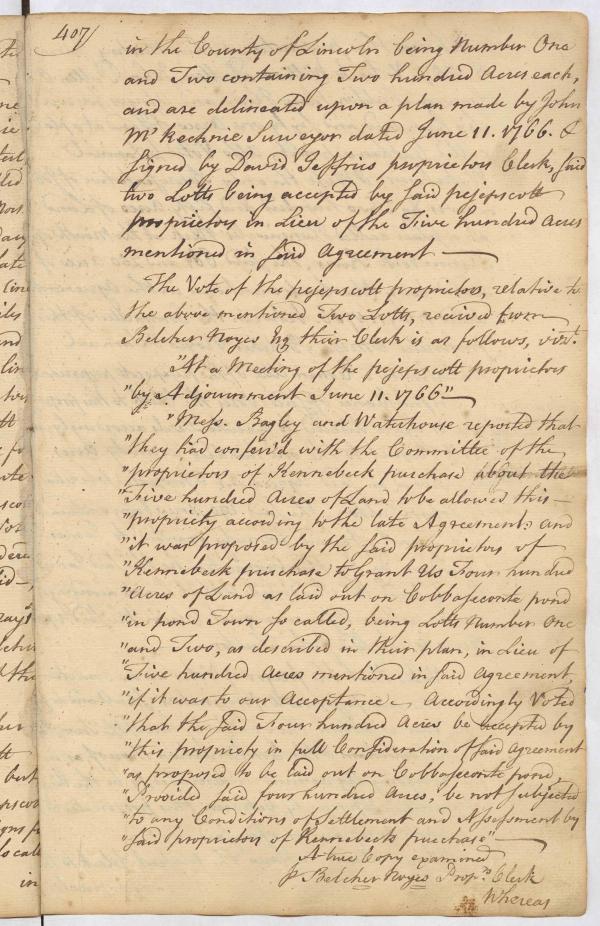 407/
in the County of Lincoln being Number One
and Two containing Two hundred Acres each,
and are delineated upon a plan made by John
Mc Kechnie Surveyor dated June 11. 1766. &
Signed by David Jeffries proprietors Clerk, said
two Lotts being accepted by said pejepscott
proprietors in Lieu of the Five hundred Acres
mentioned in said Agreement —
The Vote of the pejepscott proprietors, relative to
the above mentioned Two Lotts, received from
Belcher Noyes Esq their Clerk is as follows, vizt.
"At a Meeting of the pejepscott proprietors
"by Adjournment June 11. 1766" —
"Mess. Bagley and Waterhouse reported that
"they had confer'd with the Committee of the
"proprietors of Kennebeck purchase about the
"Five hundred Acres of Land to be allowed this —
"propriety according to the late Agreement; and
"it was proposed by the said proprietors of
"Kennebeck purchase to Grant Us Four hundred
"Acres of Land as laid out on Cobbaseconte pond
"in pond Town so called, being Lotts Number One
"and Two, as described in their plan, in Lieu of
"Five hundred Acres mentioned in said Agreement,
"if it was to our Acceptance — Accordingly Voted
"that the said Four hundred Acres be accepted by
"this propriety in full Consideration of said Agreement
"as proposed to be laid out on Cobbaseconte pond,
"Provided said four hundred Acres, be not subjected
"to any Conditions of Settlement and Assessment by
"said proprietors of Kennebeck purchase" —
A true Copy examined
p Belcher Noyes Proprs. Clerk
Whereas